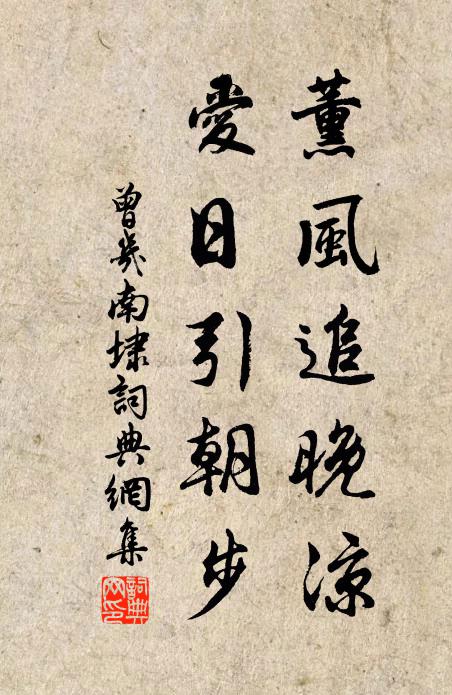 薰風追晚涼
愛日引朝步
曾幾南埭詞典網集
詞典
网印